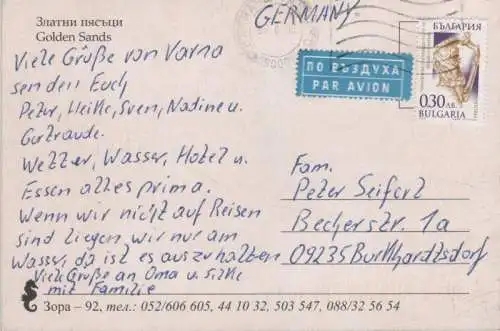 Златни пясъци
Golden Sands
GERMANY
БЪЛГАРИЯ
0.30 ЛВ.
BULGARIA
ПО ВЪЗДУХА
PAR AVION
Viele Grüße von Varna
senden Euch
Peter, Heike, Sven, Nadine u.
Gertraude.
Wetter, Wasser, Hotel u.
Essen alles prima.
Wenn wir nicht auf Reisen
sind liegen wir nur am
Wasser, da ist es auszuhalten
Viele Grüße an Oma u. Silke
mit Familie
Fam.
Peter Seifert
Becherstr. 1a
09235 Burkhardtsdorf
Зора – 92, тел.: 052/606 605, 44 10 32, 503 547, 088/32 56 54